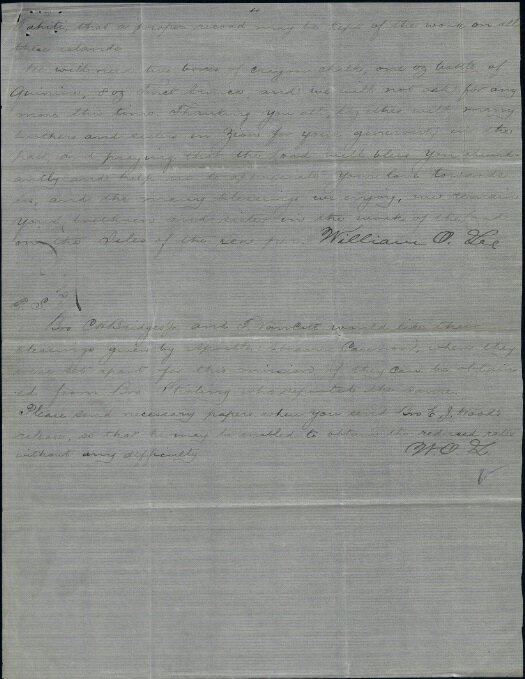 that a proper record may be kept of the work on all
these islands
We will need two boxes of crayon chalk, one oz bottle of
Quinine, 8 oz and we will not ask for any
more this time. Thanking you all, together with many
brothers and sisters in Zion for your generosity in the
past and praying that the Lord will bless you abund-
antly and help us to appreciate your towards
us, and the many blessings we enjoy, we remain
your brethren and sister in the work of the
on the Isles of the sea per William O. Lee
P.S.
Bro and would like their
blessings given by Apostle Cannon, when they
were set apart for this mission if they can be obtain-
ed from Bro who reported the same.
Please send necessary papers when you send Bro F. J. Woods
release, so that he may be enabled to obtain the reduced rates
without any difficulty W. O. L.